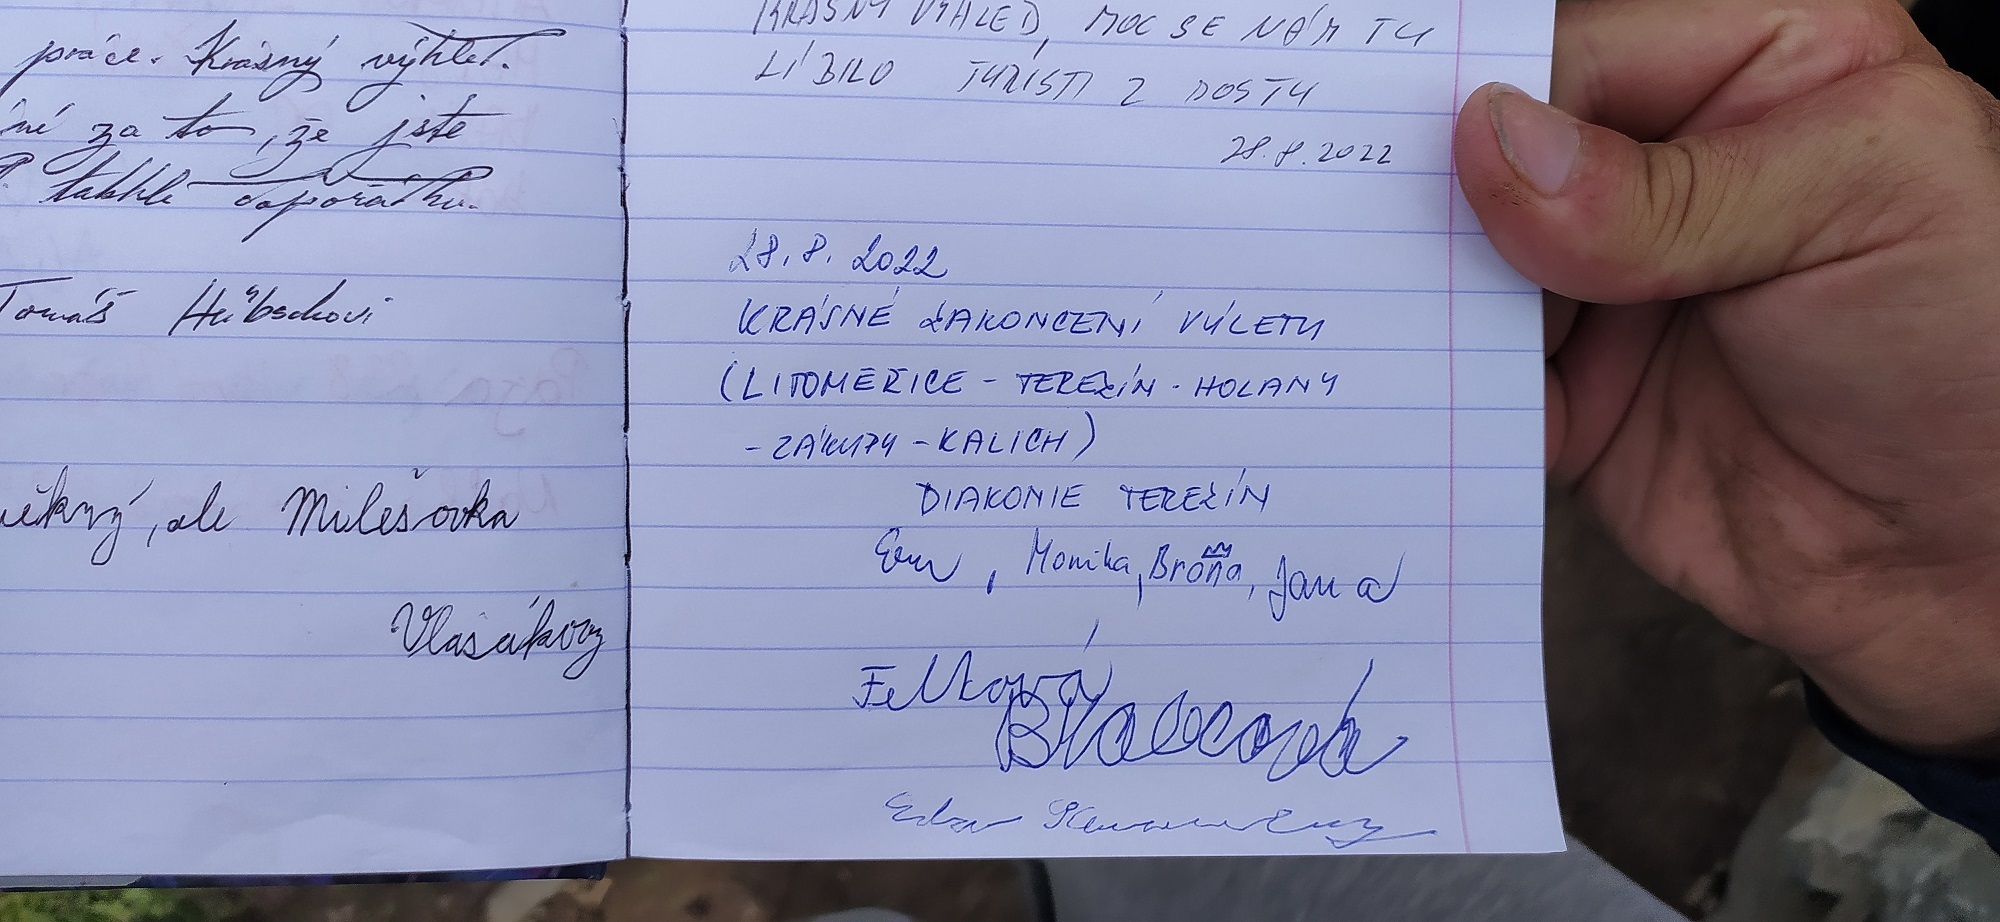 práce. Krásný výhled.
za to, že jste
takhle dopořádku.
Tomáš Hübschovi
ěkný, ale Milešovka
Vlasákovy
KRÁSNÝ VÝHLED, MOC SE NÁM TU
LÍBILO TURISTI Z DOSTU
28.8.2022
28.8.2022
KRÁSNÉ ZAKONČENÍ VÝLETU
(LITOMĚŘICE - TEREZÍN - HOLANY
- ZÁKUPY - KALICH)
DIAKONIE TEREZÍN
Monika, Broňa, Jana
Felková